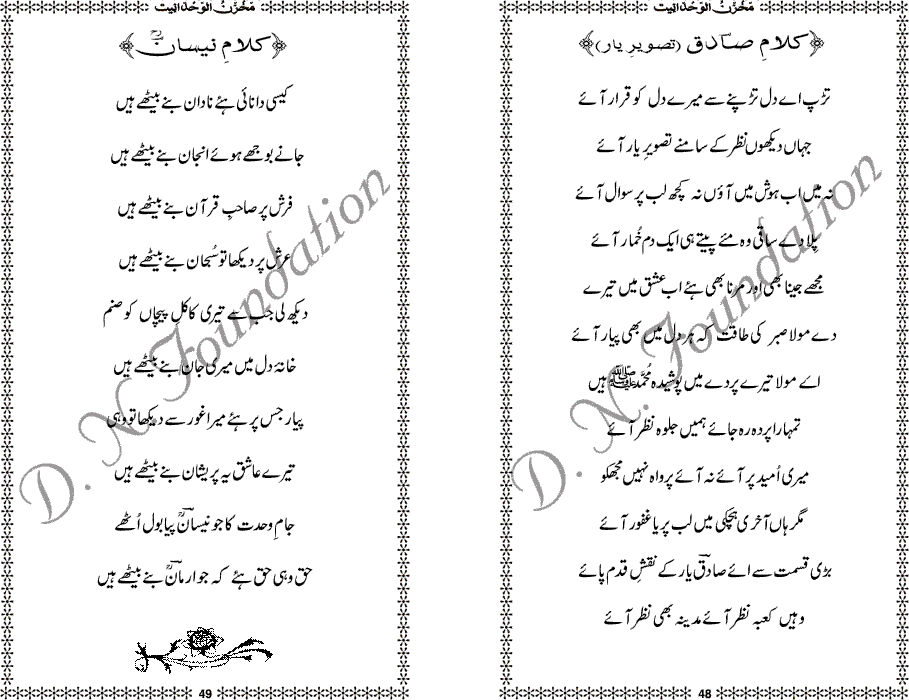 مَخْزَنُ الْوَحْدَانِیت
کلامِ صادق (تصویرِ یار)
تڑپ اے دل تڑپنے سے میرے دل کو قرار آئے
جہاں دیکھوں نظر کے سامنے تصویرِ یار آئے
نہ میں اب ہوش میں آؤں نہ کچھ لب پر سوال آئے
پلا دے ساقی وہ مئے پیتے ہی ایک دم خُمار آئے
مجھے جینا بھی اور مرنا بھی ہے اب عشق میں تیرے
دے مولا صبر کی طاقت کہ ہر دل میں بھی پیار آئے
اے مولا تیرے پردے میں پوشیدہ مُحمّد ﷺ ہیں
تمہارا پردہ رہ جائے ہمیں جلوہ نظر آئے
میری اُمید پر آئے نہ آئے پرواہ نہیں مجھکو
مگر ہاں آخری ہچکی میں لب پر یا غفور آئے
بڑی قسمت سے ائے صادقؔ یار کے نقشِ قدم پائے
وہیں کعبہ نظر آئے مدینہ بھی نظر آئے
48
مَخْزَنُ الْوَحْدَانِیت
کلامِ نیسانؒ
کیسی دانائی ہئے نادان بنے بیٹھے ہیں
جانے بوجھے ہوئے انجان بنے بیٹھے ہیں
فرش پر صاحبِ قرآن بنے بیٹھے ہیں
عرش پر دیکھا تو سُبحان بنے بیٹھے ہیں
دیکھ لی جب سے تیری کاکلِ پیچاں کو صنم
خانۂ دل میں میری جان بنے بیٹھے ہیں
پیار جس پر ہئے میرا غور سے دیکھا تو وہی
تیرے عاشق یہ پریشان بنے بیٹھے ہیں
جامِ وحدت کا جو نیسانؒ پیا بول اُٹھے
حق وہی حق ہئے کہ جو ارمانؒ بنے بیٹھے ہیں
49
D. N. Foundation
D. N. Foundation